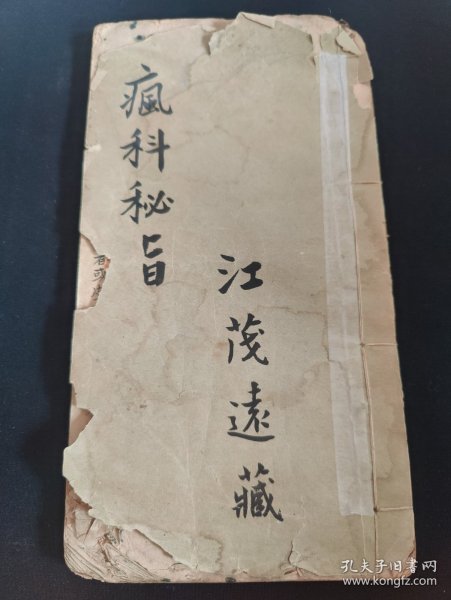 瘋科秘旨
江茂遠藏
孔夫子旧书网
www.kongfz.com